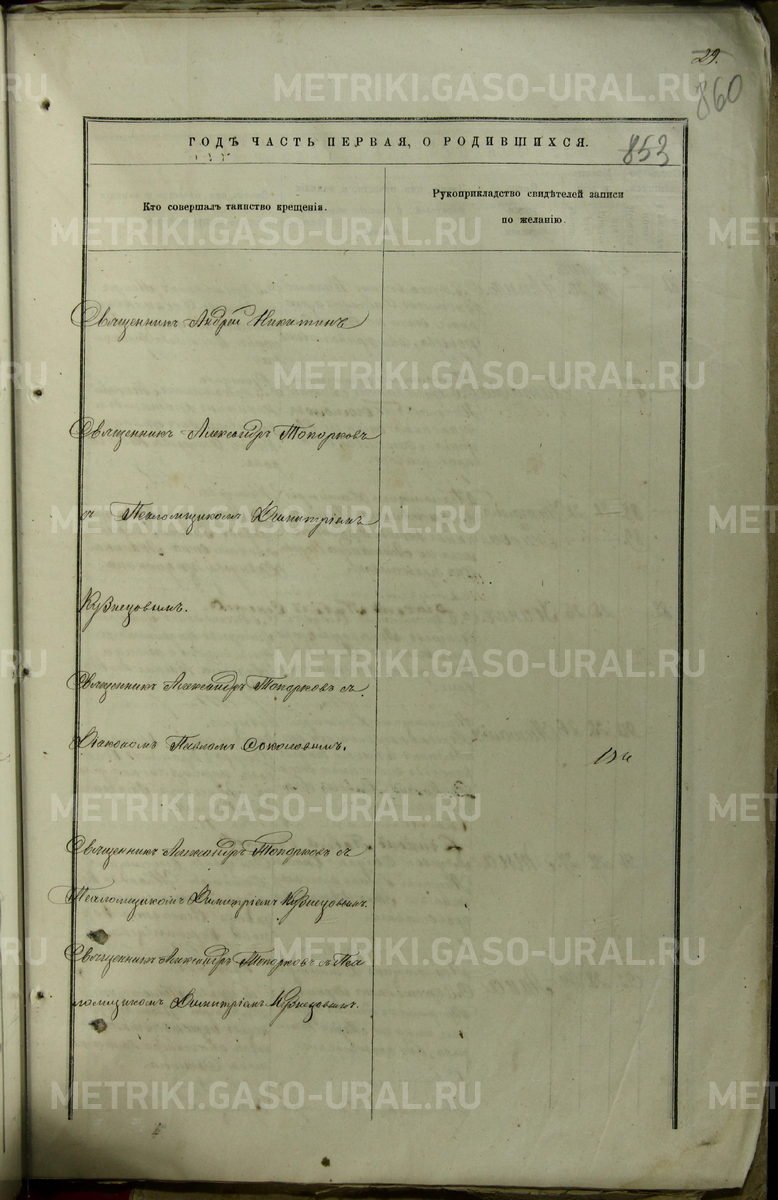 29.
860
ГОДЪ ЧАСТЬ ПЕРВАЯ, О РОДИВШИХСЯ.
853
Кто совершалъ таинство крещенія.
Рукоприкладство свидѣтелей записи
по желанію.
Священникъ Андрей Никитинъ
Священникъ Александръ Топорковъ
съ Псаломщикомъ Димитріемъ
Кузнецовымъ.
Священникъ Александръ Топорковъ съ
Діакономъ Павломъ Соколовымъ.
Священникъ Александръ Топорковъ съ
Псаломщикомъ Димитріемъ Кузнецовымъ.
Священникъ Александръ Топорковъ съ Пса
ломщикомъ Димитріемъ Кузнецовымъ.
METRIKI.GASO-URAL.RU